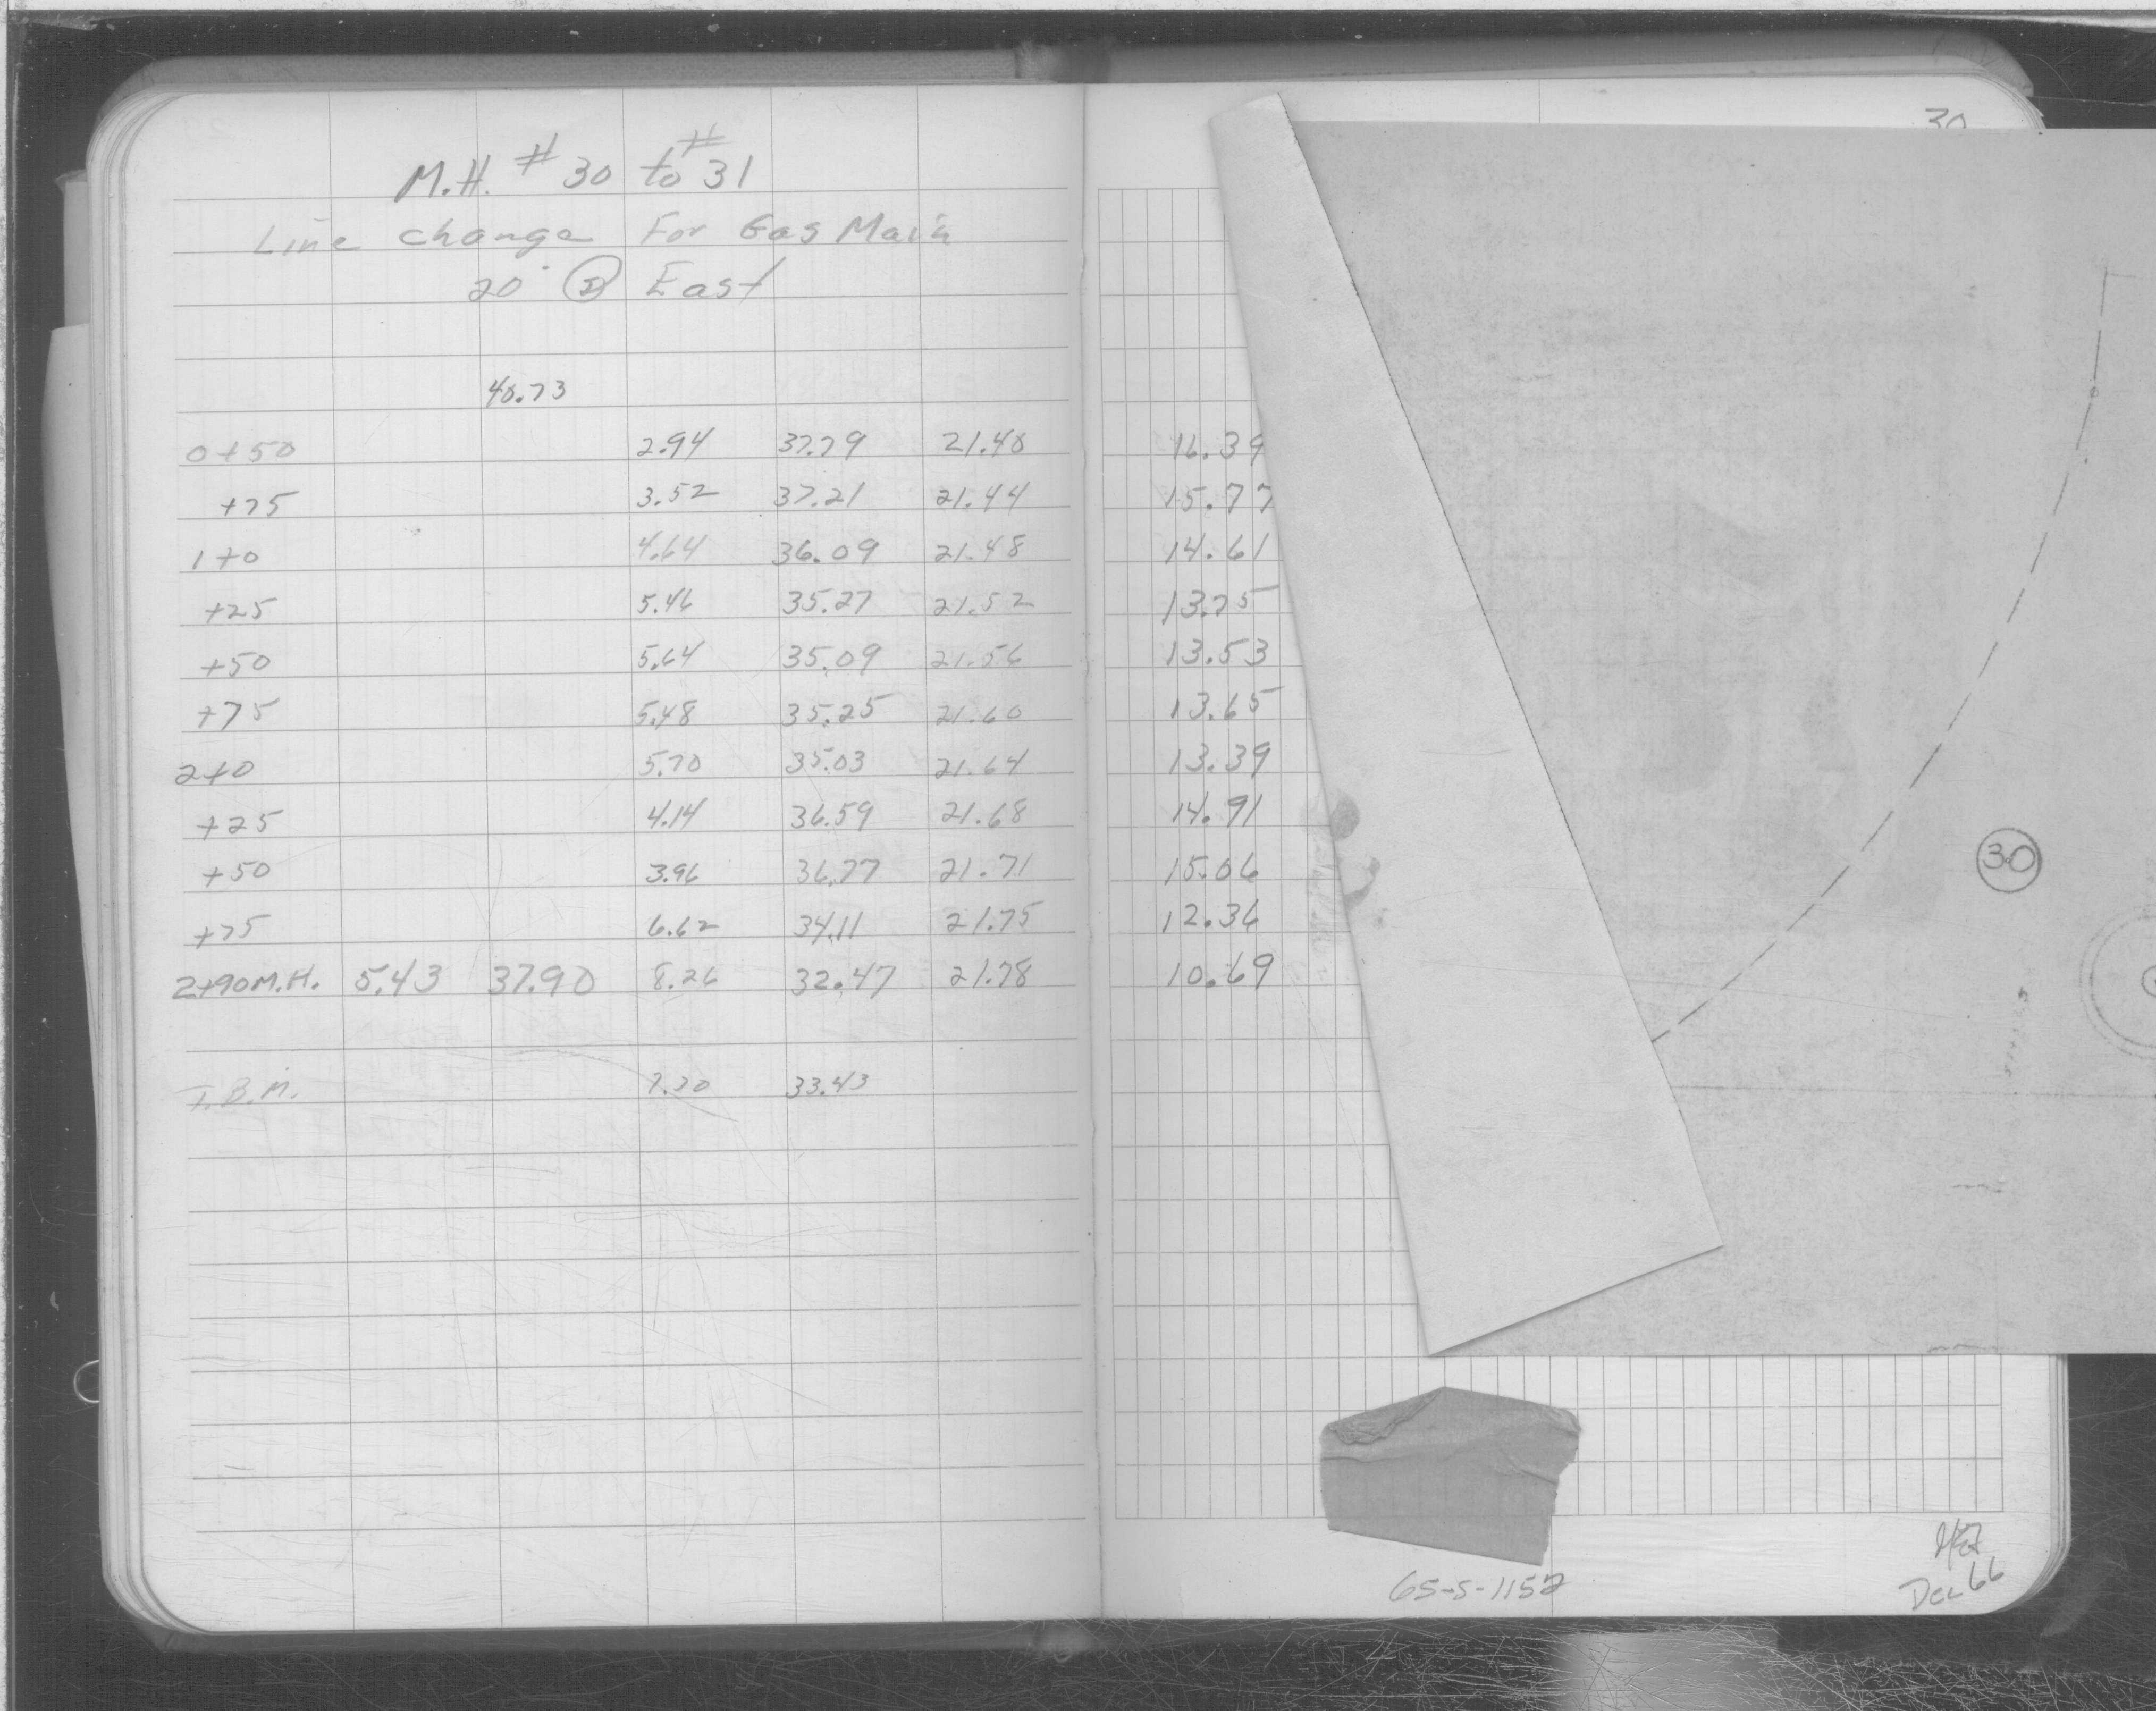 30
M.H. # 30 to # 31
Line change For Gas Main
20' East
40.73
0+50 2.94 37.79 21.40 16.39
+75 3.52 37.21 21.44 15.77
1+0 4.64 36.09 21.48 14.61
+25 5.46 35.27 21.52 13.75
+50 5.64 35.09 21.56 13.53
+75 5.48 35.25 21.60 13.65
2+0 5.70 35.03 21.64 13.39
+25 4.14 36.59 21.68 14.91
+50 3.96 36.77 21.71 15.06
+75 6.62 34.11 21.75 12.36
2+90 M.H. 5.43 37.90 8.26 32.47 21.78 10.69
T.B.M. 7.30 33.43
30
65-S-1152
Dec 66